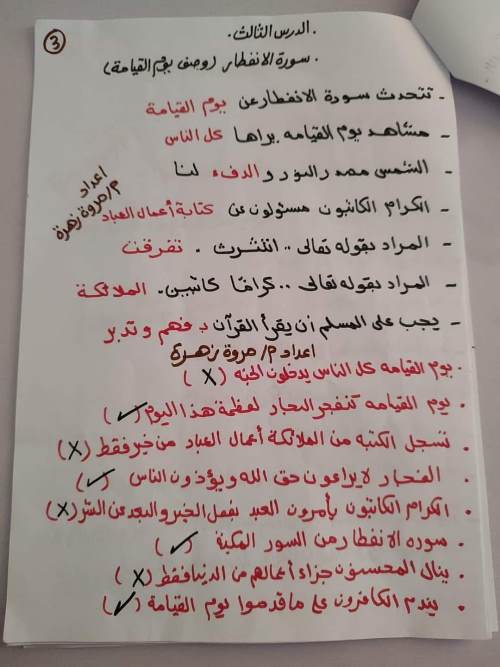 الدرس الثالث.
③
سورة الانفطار (وصف يوم القيامة).
- تتحدث سورة الانفطار عن يوم القيامة
- مشاهد يوم القيامه يراها كل الناس
- الشمس مصدر النور و الدفء لنا
اعداد م/مروة زهرة
- الكرام الكاتبون مسئولون عن كتابة أعمال العباد
- المراد بقوله تعالى .. انتثرت . تفرقت
- المراد بقوله تعالى .. كرامًا كاتبين. الملائكة
- يجب على المسلم أن يقرأ القرآن بفهم وتدبر
اعداد م/ مروة زهرة
. يوم القيامه كل الناس يدخلون الجنه (X)
. يوم القيامه تنفجر البحار لعظمة هذا اليوم (✓)
. تسجل الكتبه من الملائكة أعمال العباد من خير فقط (X)
. الفجار لا يراعون حق الله ويؤذون الناس (✓)
. الكرام الكاتبون يأمرون العبد بفعل الخير والبعد عن الشر (X)
. سوره الانفطار من السور المكية (✓)
. ينال المحسنون جزاء أعمالهم من الدنيا فقط (X)
. يندم الكافرون على ما قدموا يوم القيامة (✓)